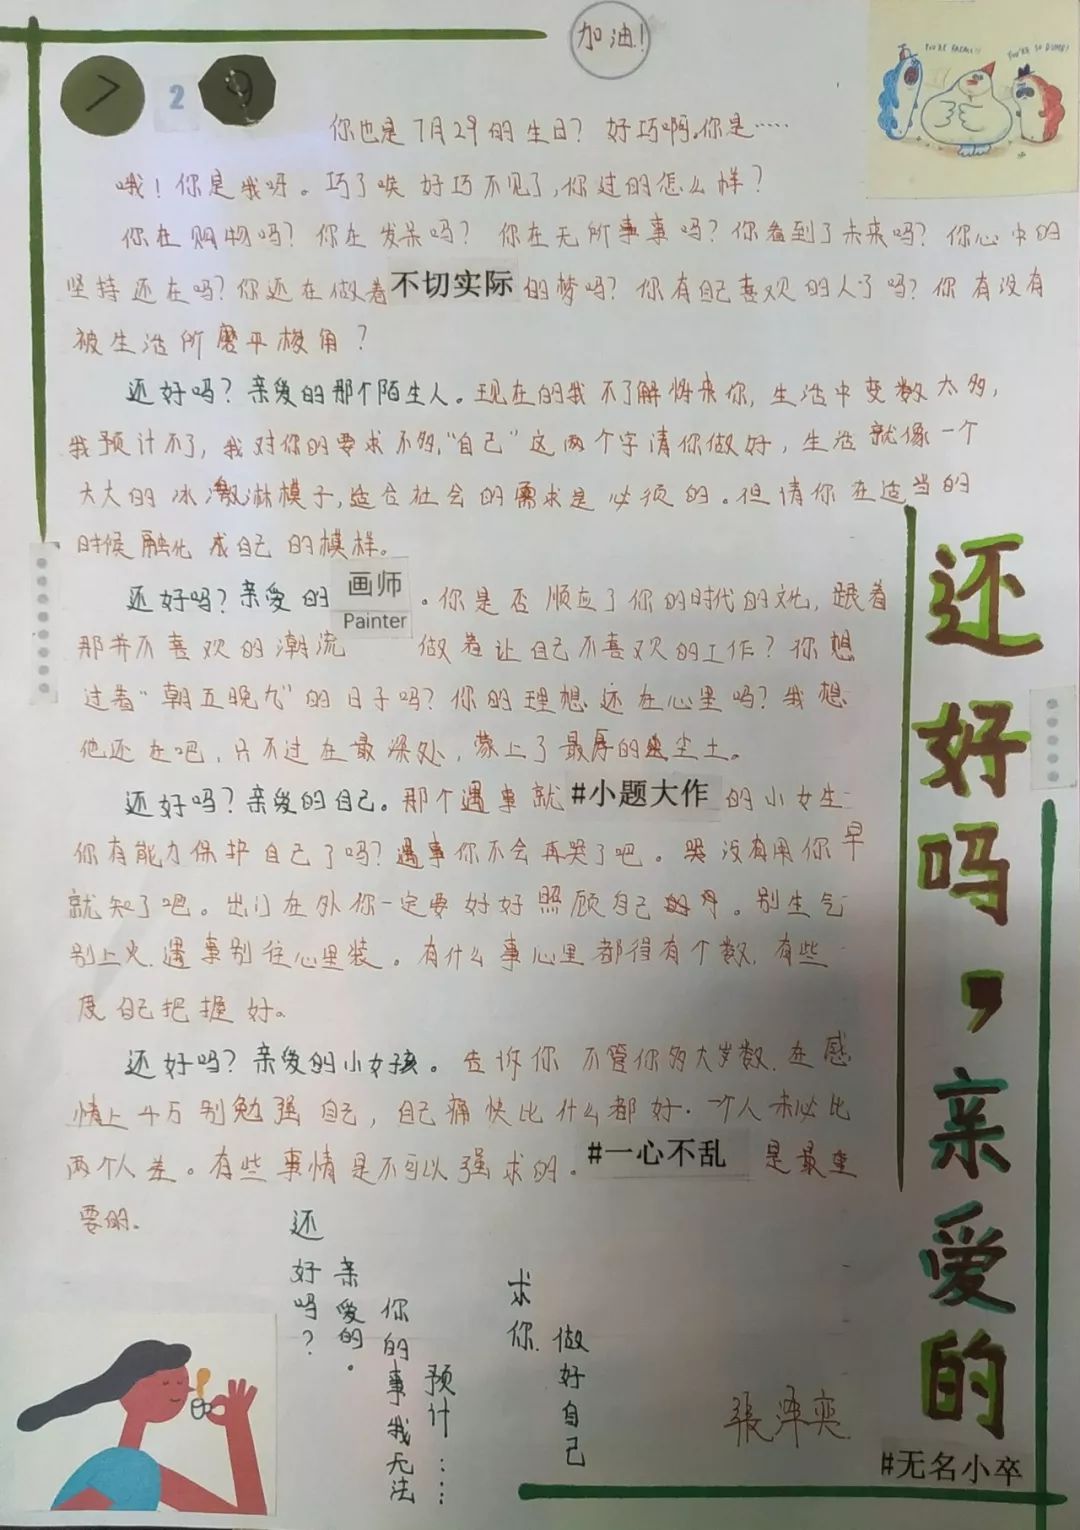 加油！
YOU'RE
7 2 9
你也是7月29的生日？好巧啊。你是……
哦！你是我呀。巧了唉 好巧不见了，你过的怎么样？
你在购物吗？你在发呆吗？你在无所事事吗？你看到了未来吗？你心中的
坚持还在吗？你还在做着不切实际的梦吗？你有自己喜欢的人了吗？你有没有
被生活所磨平棱角？
还好吗？亲爱的那个陌生人。现在的我不了解将来你，生活中变数太多，
我预计不了，我对你的要求不多，“自己”这两个字请你做好，生活就像一个
大大的冰激淋模子，适合社会的需求是必须的。但请你在适当的
时候融化成自己的模样。
还好吗？亲爱的画师。你是否顺应了你的时代的文化，跟着
Painter
那并不喜欢的潮流 做着让自己不喜欢的工作？你想
过着“朝五晚九”的日子吗？你的理想还在心里吗？我想
他还在吧，只不过在最深处，蒙上了最厚的尘土。
还好吗？亲爱的自己。那个遇事就#小题大作的小女生
你有能力保护自己了吗？遇事你不会再哭了吧。哭没有用你早
就知了吧。出门在外你一定要好好照顾自己。别生气
别上火，遇事别往心里装。有什么事心里都得有个数，有些
度自己把握好。
还好吗？亲爱的小女孩。告诉你 不管你多大岁数，在感
情上千万别勉强自己，自己痛快比什么都好．一个人未必比
两个人差。有些事情是不可以强求的。#一心不乱是最重
要的。
还好吗？
亲爱的。
你的事我无法
预计……
求你
做好自己
張泽奕
还好吗，亲爱的
#无名小卒